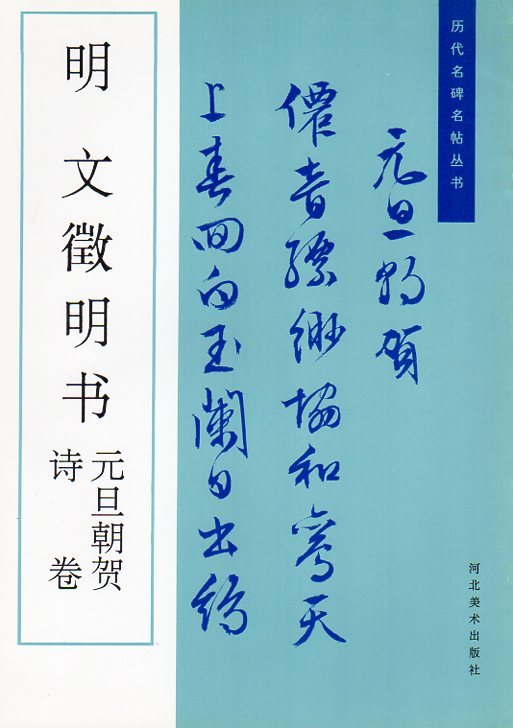 历代名碑名帖丛书
元旦朝賀
僊音縹緲協和鸞天
上春回白玉闌日出
明 文徵明书
元旦朝贺
诗 卷
河北美术出版社